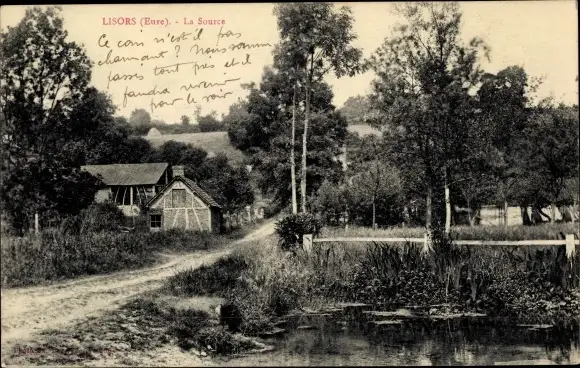 LISORS (Eure). - La Source
Ce coin n'est il pas
charmant ? Nous sommes
passés tout près et il
faudra revenir
pour le voir